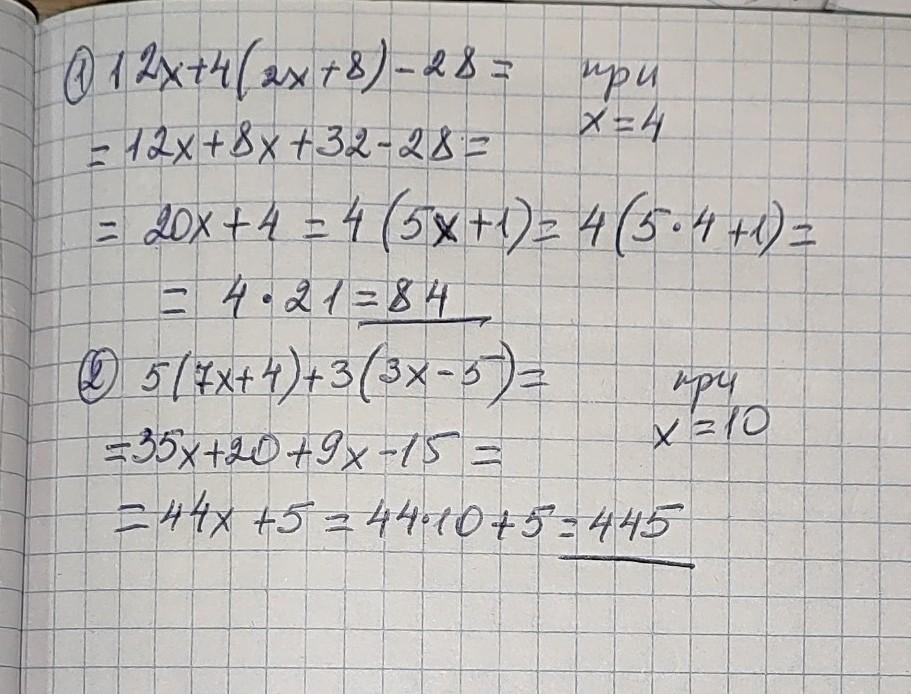 ① 12x+4(2x+8)-28= при
x=4
=12x+8x+32-28=
= 20x+4 = 4(5x+1)= 4(5·4+1)=
= 4·21=84
② 5(7x+4)+3(3x-5)= при
x=10
=35x+20+9x-15=
=44x+5=44·10+5=445